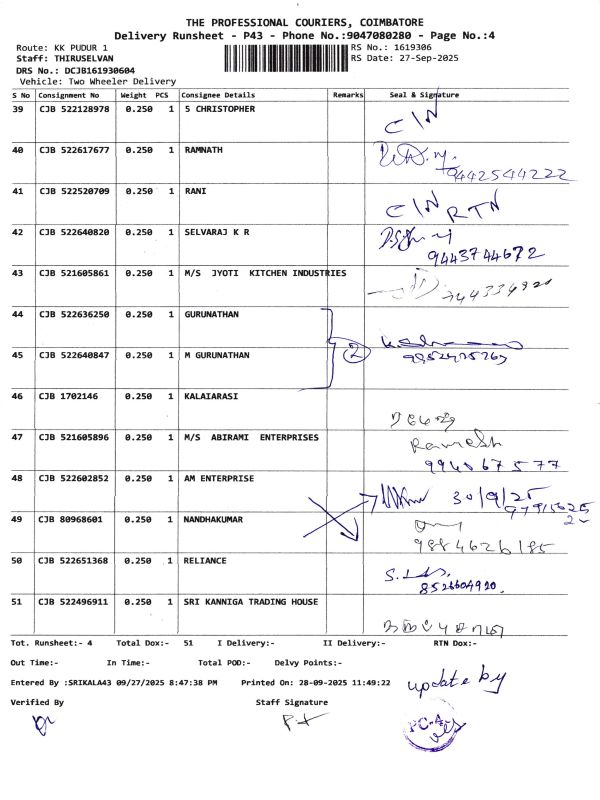 THE PROFESSIONAL COURIERS, COIMBATORE
Delivery Runsheet - P43 - Phone No.:9047080280 - Page No.:4
Route: KK PUDUR 1 RS No.: 1619306
Staff: THIRUSELVAN RS Date: 27-Sep-2025
DRS No.: DCJB161930604
Vehicle: Two Wheeler Delivery
S No Consignment No Weight PCS Consignee Details Remarks Seal & Signature
39 CJB 522128978 0.250 1 S CHRISTOPHER
C/N
40 CJB 522617677 0.250 1 RAMNATH
9442544222
41 CJB 522520709 0.250 1 RANI
C/N RTN
42 CJB 522640820 0.250 1 SELVARAJ K R
9443744672
43 CJB 521605861 0.250 1 M/S JYOTI KITCHEN INDUSTRIES
44 CJB 522636250 0.250 1 GURUNATHAN
2
45 CJB 522640847 0.250 1 M GURUNATHAN
46 CJB 1702146 0.250 1 KALAIARASI
47 CJB 521605896 0.250 1 M/S ABIRAMI ENTERPRISES
Ramesh
9940867577
48 CJB 522602852 0.250 1 AM ENTERPRISE
30/9/25
49 CJB 80968601 0.250 1 NANDHAKUMAR
9884626185
50 CJB 522651368 0.250 1 RELIANCE
8526604920.
51 CJB 522496911 0.250 1 SRI KANNIGA TRADING HOUSE
Tot. Runsheet:- 4 Total Dox:- 51 I Delivery:- II Delivery:- RTN Dox:-
Out Time:- In Time:- Total POD:- Delvy Points:-
Entered By :SRIKALA43 09/27/2025 8:47:38 PM Printed On: 28-09-2025 11:49:22
update by
Verified By Staff Signature
PC-4